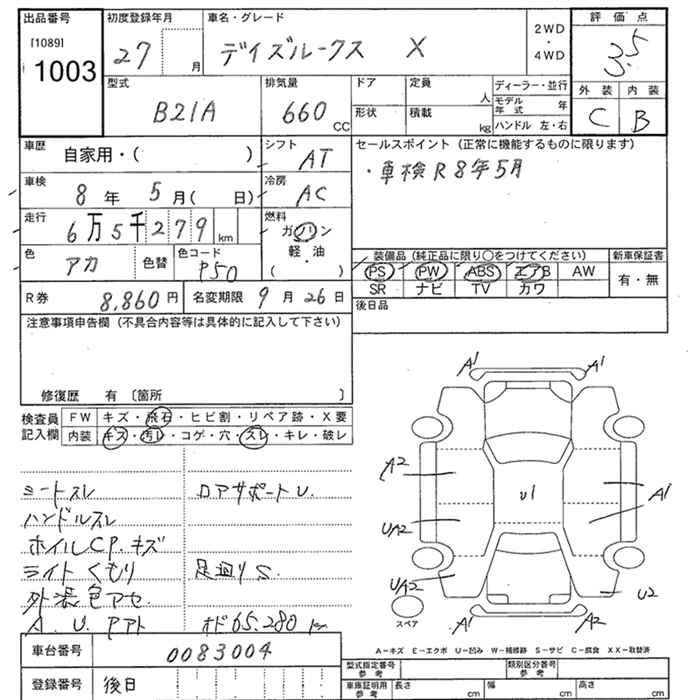 出品番号
[1089]
1003
初度登録年月
27 月
車名・グレード
デイズルークス X
2WD
・
4WD
評価点
3.5
外装 内装
C B
型式
B21A
排気量
660 CC
ドア
形状
定員
人
積載
kg
ディーラー・並行
モデル年式 年
ハンドル 左・右
車歴
自家用・( )
シフト
AT
セールスポイント(正常に機能するものに限ります)
・車検R8年5月
車検
8 年 5 月( 日)
冷房
AC
走行
6万5千279 km
燃料
ガソリン
軽・油
( ・ )
色
アカ
色替
色コード
P50
装備品(純正品に限り〇をつけてください)
新車保証書
PS PW ABS エアB AW
SR ナビ TV カワ
有・無
R券
8,860円
名変期限 9月26日
後日品
注意事項申告欄(不具合内容等は具体的に記入して下さい)
修復歴 有〔箇所 〕
検査員
記入欄
FW キズ・飛石・ヒビ割・リペア跡・X要
内装 キズ・汚レ・コゲ・穴・スレ・キレ・破レ
シートスレ
ロアサポートU.
ハンドルスレ
ホイルCP.キズ
ライトくもり
足廻りS
外装色アセ
A.U.Pアト
オド65,280km
A1
A1
A2
U1
A1
UA2
UA2
U2
スペア
A1
A2
A-キズ E-エクボ U-凹み W-補修跡 S-サビ C-腐食 XX-取替済
車台番号
0083004
登録番号
後日
型式指定番号
参考
類別区分番号
参考
車庫証明用
参考
長さ cm
幅 cm
高さ cm